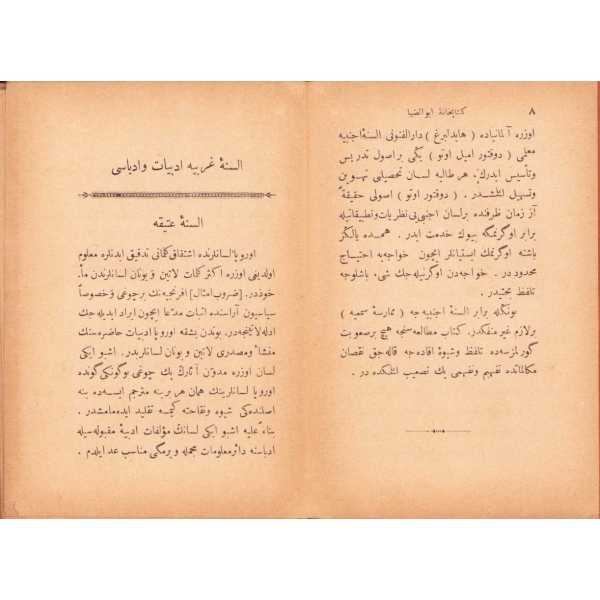 ٨ كتابخانهٔ ابوالضيا
اوزره آلمانياده ( هايدلبرغ ) دارالفنونى السنهٔ اجنبيه
معلمى ( دوقتور اميل اوتو ) يكى براصول تدريس
وتأسيس ايدرك هر طالبه لسان تحصيلنى تهوين
وتسهيل ائلشدر . ( دوقتور اوتو ) اصولى حقيقةً
آز زمان ظرفنده برلسان اجنبى يى نظريات وتطبيقاتيله
برابر اوكرنمكه بيوك خدمت ايدر . همده يالكز
باشنه اوكرنمك ايستيانلر ايچون خواجه‌يه احتياج
محدود در . خواجه‌دن اوكرنيله‌جك شى، باشلوجه
تلفظ بحثيدر .
بونكله برابر السنهٔ اجنبيه‌جه ( ممارسهٔ سمعيه )
برلازم غير منفكدر . كتاب مطالعه سنجه هيچ برصعوبت
كورلمزسه‌ده تلفظ وشيوهٔ افاده‌جه قاله‌جق نقصان
مكالماتده تفهيم وتفهمى پك تصعيب ائلكده در .
السنهٔ غربيه ادبيات وادباسى
السنهٔ عتيقه
اوروپا لسانلرنده اشتقاق كلماتى تدقيق ايدنلره معلوم
اولديغى اوزره اكثر كلمات لاتين و يونان لسانلرندن مأ-
خوذدر. [ضروب امثال] افرنجيه‌نك برچوغى وخصوصا
سياسيون آراسنده اثبات مدعا ايچون ايراد ايديله‌جك
ادله لاتينجه‌در. بوندن بشقه اوروپا ادبيات حاضره‌سنك
منشأ ومصدرى لاتين و يونان لسانلريدر. اشبو ايكى
لسان اوزره مدون آثارك پك چوغى بوكونكى كونده
اوروپا لسانلرينك همان هر برينه مترجم ايسه‌ده ينه
اصلنده‌كى شيوه ونفاحته كيمسه تقليد ايده‌مامشدر .
بناءً عليه اشبو ايكى لسانك مؤلفات ادبيهٔ مقبوله‌سيله
ادباسنه دائر معلومات مجمله ويرمكى مناسب عد ايلدم .